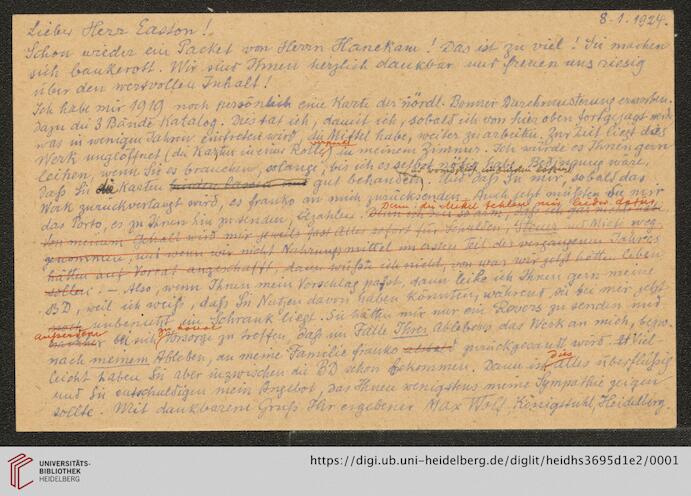 8.1.1924.
Lieber Herr Easton!
Schon wieder ein Packet von Herrn Hanekam! Das ist zu viel! Sie machen
sich bankerott. Wir sind Ihnen herzlich dankbar und freuen uns riesig
über den wertvollen Inhalt!
Ich habe mir 1919 noch persönlich eine Karte der nördl. Bonner Durchmusterung erworben.
Dazu die 3 Bände Katalog. Dies tat ich, damit ich, sobald ich von hier oben fortgejagt werde
was in wenigen Jahren eintreten wird, die Mittel habe, weiter zu arbeiten. Zur Zeit liegt dies
Werk ungeöffnet (die Karten in einer Rolle) in meinem Zimmer. Ich würde es Ihnen gern
leihen, wenn Sie es brauchen, solange, bis ich es selbst nötig habe. Bedingung wäre,
daß Sie die Karten gut behandeln. Und daß Sie mir, sobald das
Werk zurückverlangt wird, es franko an mich zurücksenden. Auch jetzt müßten Sie mir
das Porto, es zu Ihnen hin zu senden, bezahlen. Denn die Mittel fehlen mir leider dafür.
Von meinem Gehalt wird mir jeweils fast Alles sofort für Schulden, Steuer und Miete weg-
genommen, und wenn wir nicht Nahrungsmittel im ersten Teil des vergangenen Jahres
hätten auf Vorrat angeschafft, dann wüßte ich nicht, von was wir jetzt hätten leben
sollen. — Also, wenn Ihnen mein Vorschlag paßt, dann leihe ich Ihnen gern meine
BD, weil ich weiß, daß Sie Nutzen davon haben könnten, während sie bei mir jetzt
unbenützt im Schrank liegt. Sie hätten mir nur ein Revers zu senden und
außerdem bei sich Vorsorge zu treffen, daß im Falle Ihres Ablebens das Werk an mich, bezw.
nach meinem Ableben, an meine Familie franko zurückgesandt wird. Viel-
leicht haben Sie aber inzwischen die BD schon bekommen. Dann ist dies Alles überflüssig
und Sie entschuldigen mein Angebot, das Ihnen wenigstens meine Sympathie zeigen
sollte. Mit dankbarem Gruß Ihr ergebener Max Wolf. Königstuhl, Heidelberg.
UNIVERSITÄTS-
BIBLIOTHEK
HEIDELBERG
https://digi.ub.uni-heidelberg.de/diglit/heidhs3695d1e2/0001